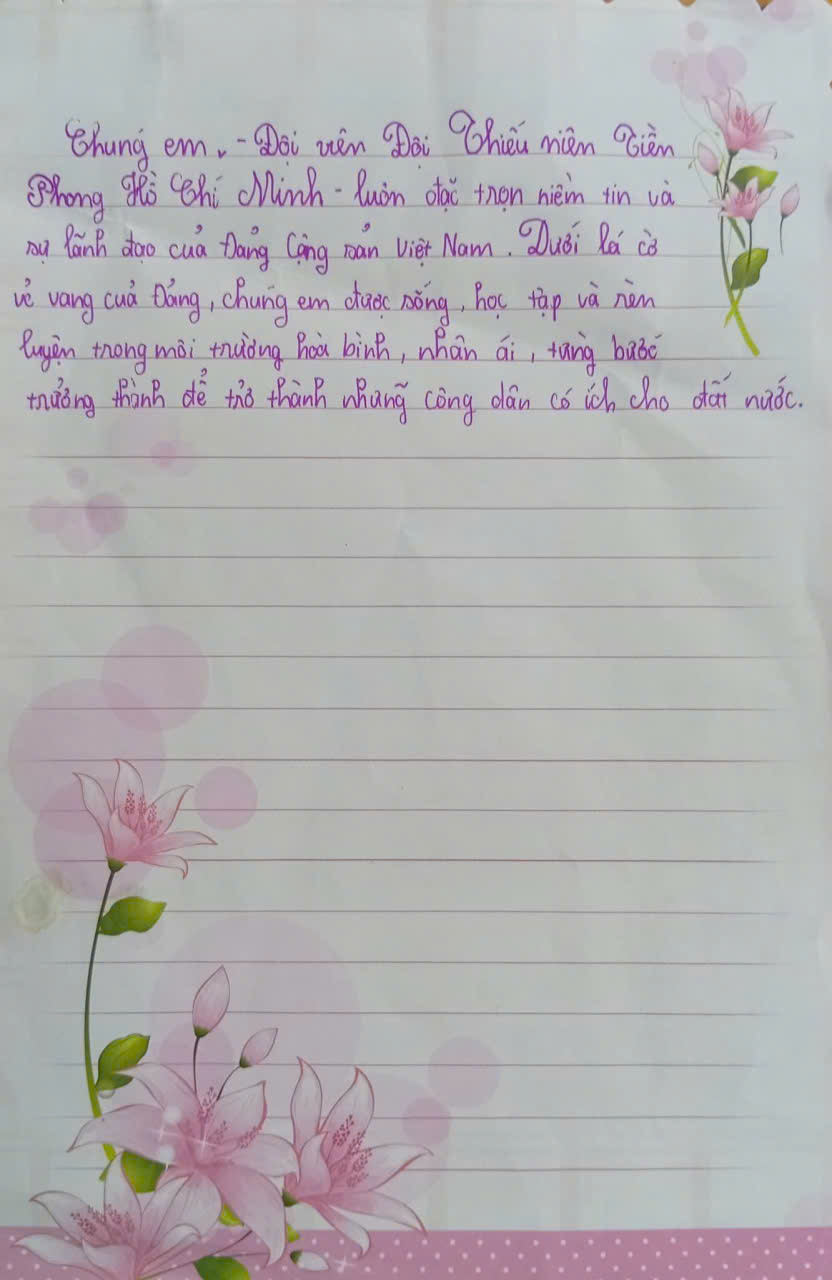 Chúng em, - Đội viên Đội Thiếu niên Tiền
Phong Hồ Chí Minh - luôn đặt trọn niềm tin và
sự lãnh đạo của Đảng Cộng sản Việt Nam. Dưới lá cờ
vẻ vang của Đảng, chúng em được sống, học tập và rèn
luyện trong môi trường hoà bình, nhân ái, từng bước
trưởng thành để trở thành những công dân có ích cho đất nước.